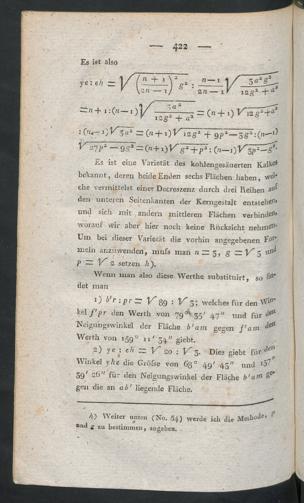 — 422 —
Es ist also
ye : eh = √((n + 1)/(2n − 1))² g² : (n − 1)/(2n − 1) √(3a²g²)/(12g² + a²)
= n + 1 : (n − 1) √(3a²)/(12g² + a²) = (n + 1) √12g² + a²
: (n − 1) √3a² = (n + 1) √12g² + 9p² − 3g² : (n − 1)
√27p² − 9g² = (n + 1) √g² + p² : (n − 1) √3p² − g².
Es ist eine Varietät des kohlengesäuerten Kalkes
bekannt, deren beide Enden sechs Flächen haben, wel-
che vermittelst einer Decreszenz durch drei Reihen auf
den unteren Seitenkanten der Kerngestalt entstehen,
und sich mit andern mittleren Flächen verbinden,
worauf wir aber hier noch keine Rücksicht nehmen.
Um bei dieser Varietät die vorhin angegebenen For-
meln anzuwenden, muſs man n = 3, g = √3 und
p = √2 setzen h).
Wenn man also diese Werthe substituirt, so fin-
det man
1) b'r : pr = √89 : √3; welches für den Win-
kel f'pr den Werth von 79° 35' 47" und für den
Neigungswinkel der Fläche b'am gegen f'am den
Werth von 159° 11' 34" giebt.
2) ye : eh = √20 : √3. Dies giebt für den
Winkel yhe die Gröſse von 68° 49' 43" und 137°
39' 26" für den Neigungswinkel der Fläche b'am ge-
gen die an ab' liegende Fläche.
h) Weiter unten (No. 34) werde ich die Methode, p
und g zu bestimmen, angeben.